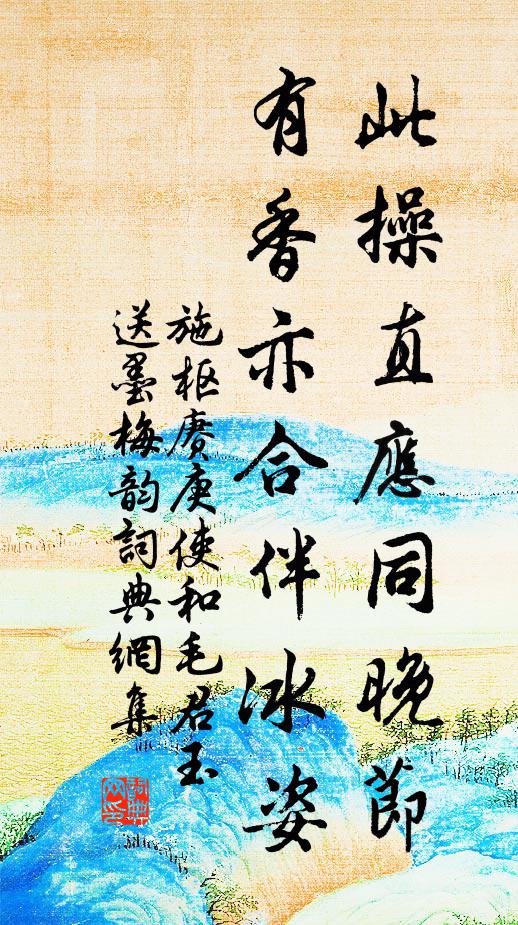 此操直應同晚節
有香亦合伴冰姿
施枢賡庚使和毛君玉
送墨梅韵詞典網集